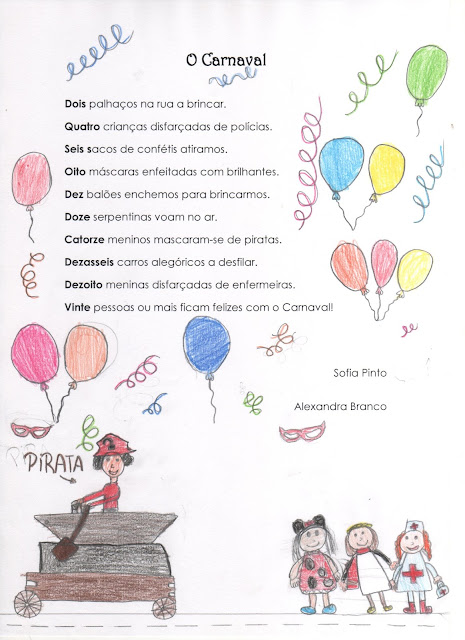 O Carnaval
Dois palhaços na rua a brincar.
Quatro crianças disfarçadas de polícias.
Seis sacos de confétis atiramos.
Oito máscaras enfeitadas com brilhantes.
Dez balões enchemos para brincarmos.
Doze serpentinas voam no ar.
Catorze meninos mascaram-se de piratas.
Dezasseis carros alegóricos a desfilar.
Dezoito meninas disfarçadas de enfermeiras.
Vinte pessoas ou mais ficam felizes com o Carnaval!
Sofia Pinto
Alexandra Branco
PIRATA